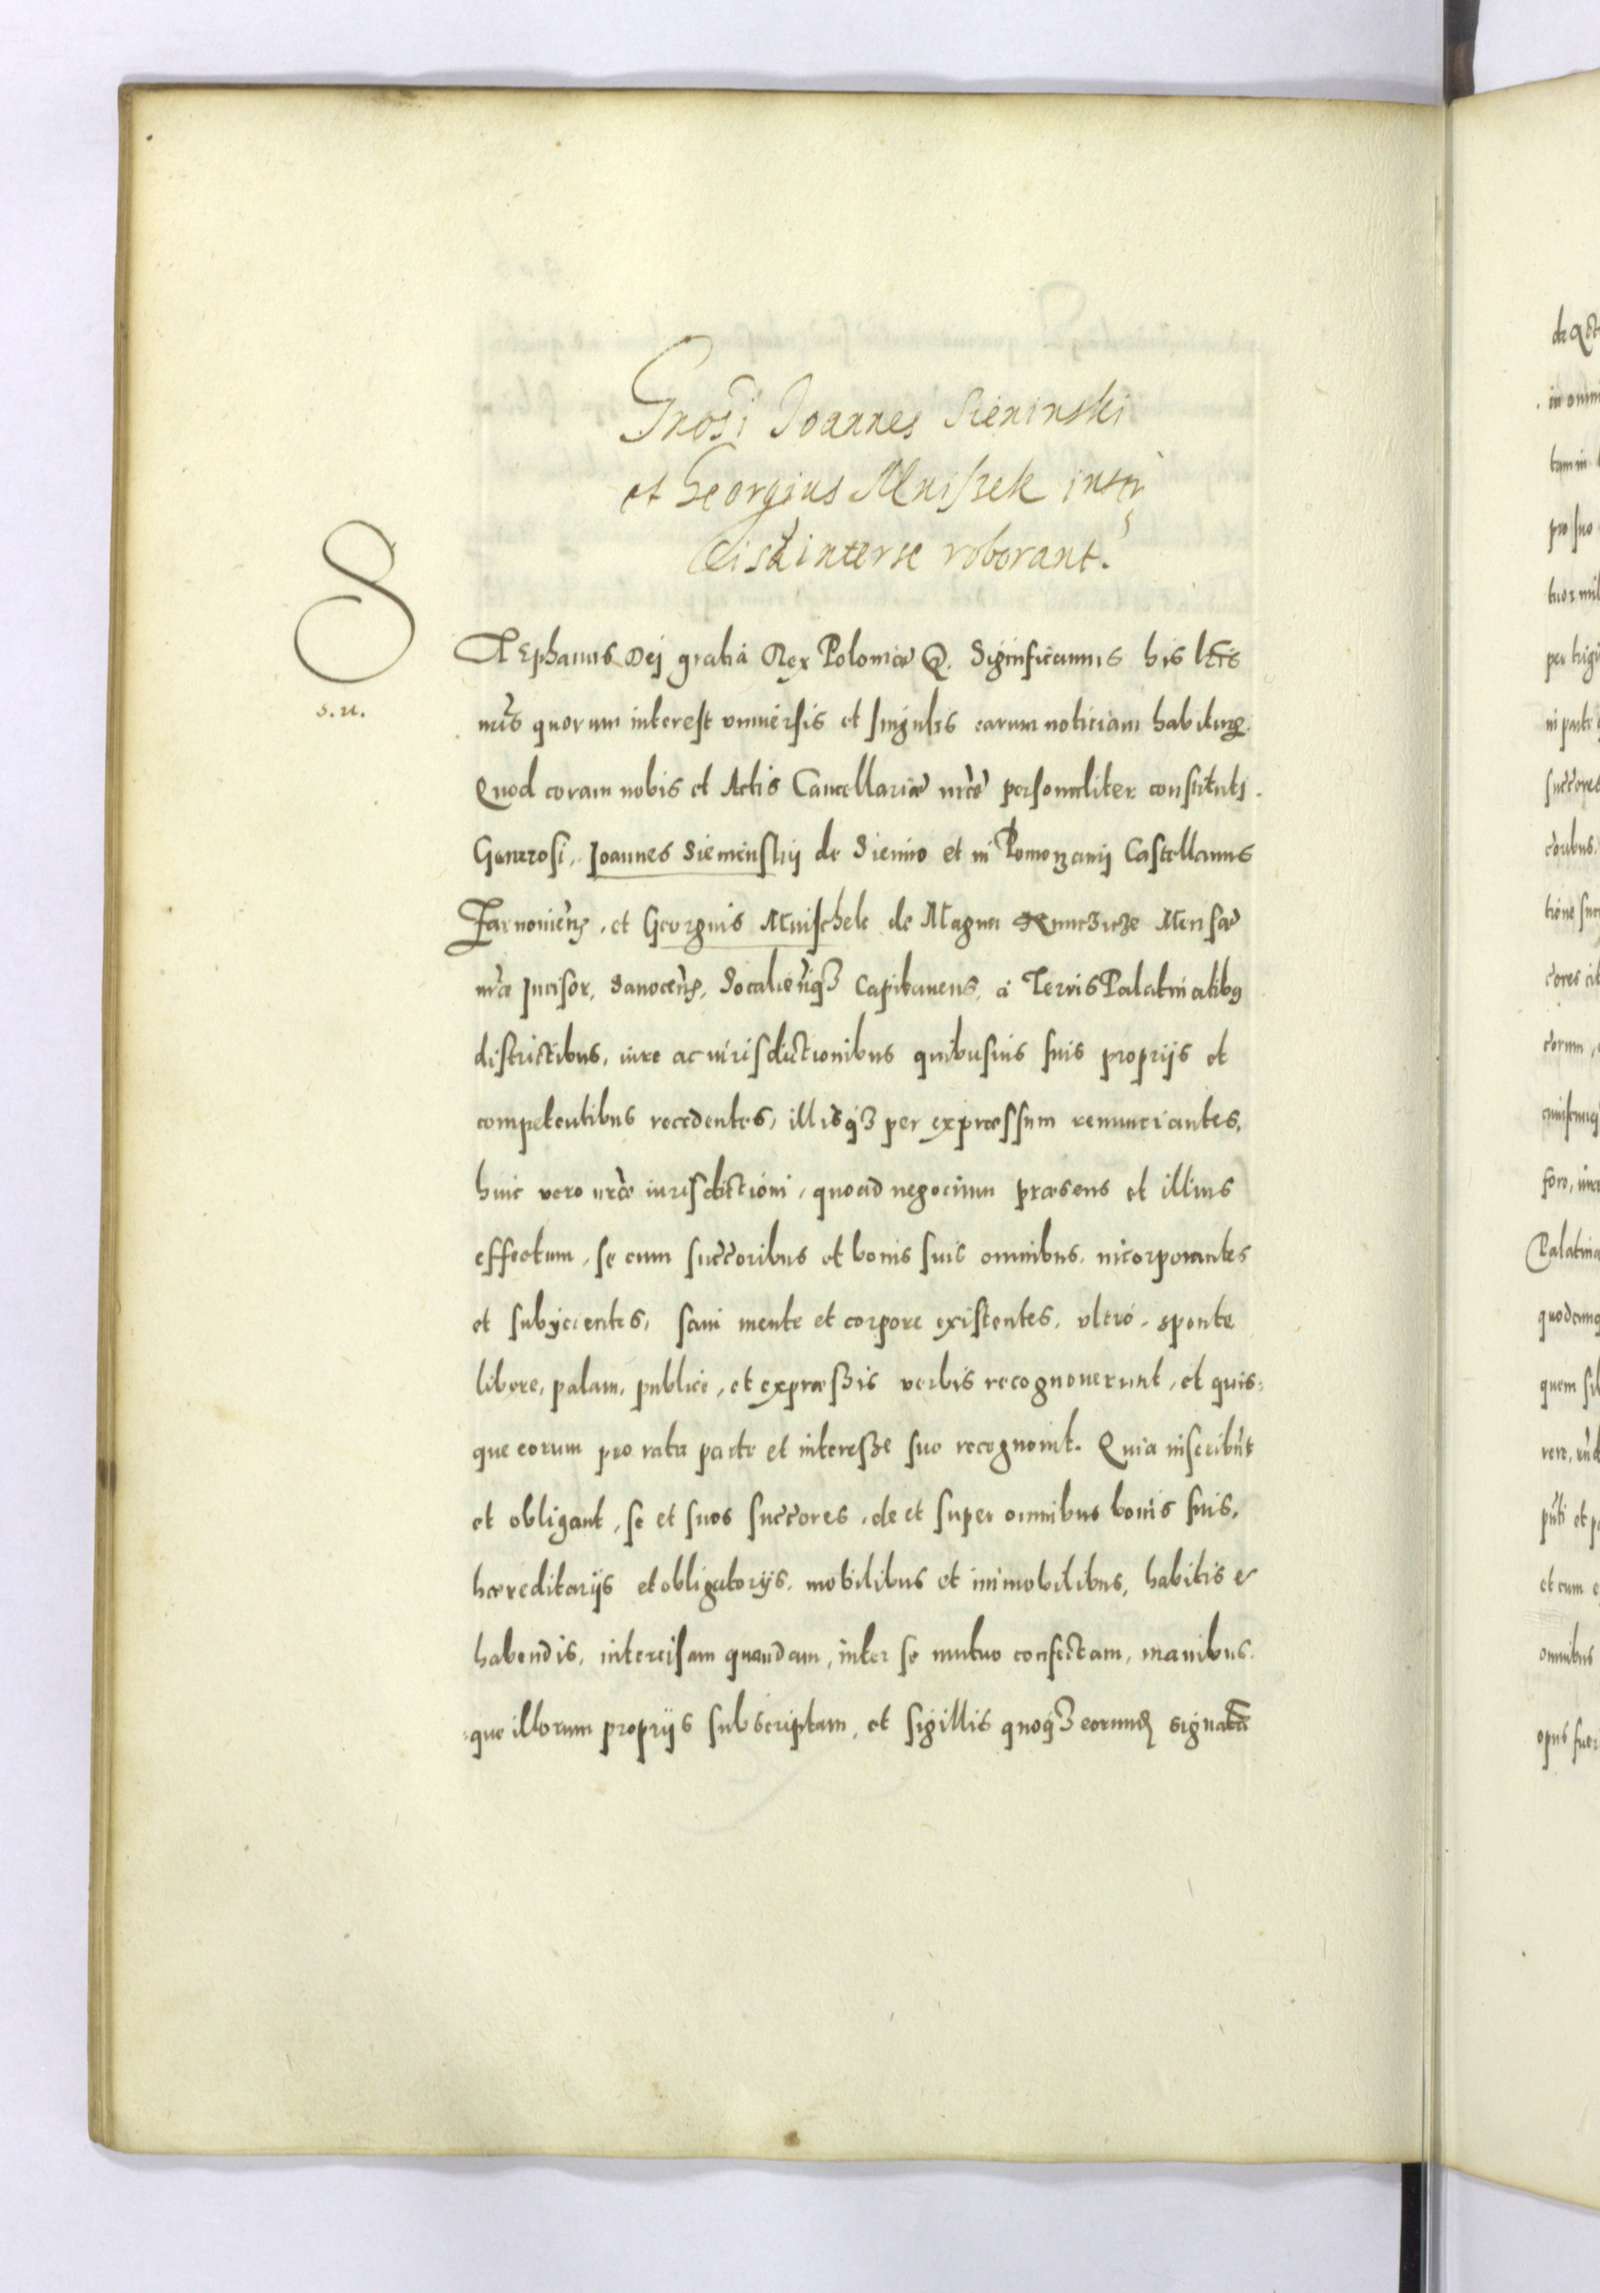 Gnosi Joannes Sieninski
et Georgius Mniszek inter
cisã inter se roborant.
S
s. u.
Stephanus Dej gratia Rex Poloniæ &. Significamus his lris
nris quorum interest vniuersis et singulis earum noticiam habituris.
Quod coram nobis et Actis Cancellariæ nræ personaliter constituti.
Generosi, Joannes Sieninskij de Sienno et in Pomorzanij Castellanus
Zarnouien, et Georgius Mnischek de Magna Kunczicze Mensæ
nræ Incisor, Sanocen, Socaliensqȝ Capitaneus, a Terris Palatinatibus
districtibus, iure ac iurisdictionibus quibusuis suis proprijs et
competentibus recedentes, illisqȝ per expressum renunciantes,
huic vero nræ iurisdictioni, quoad negocium præsens et illius
effectum, se cum succoribus et bonis suis omnibus, incorporantes
et subijcientes, sani mente et corpore existentes, vltro, sponte
libere, palam, publice, et expressis verbis recognouerunt, et quis:
que eorum pro rata parte et interesse suo recognouit. Quia inscribũt
et obligant, se et suos succores, de et super omnibus bonis suis,
hæreditarijs et obligatorijs, mobilibus et immobilibus, habitis &
habendis, intercisam quandam, inter se mutuo confectam, manibus
que illorum proprijs subscriptam, et sigillis quoqȝ eorund signatã
de
in omni
tam in
pro suo
tuor mil
per trigi
in parte
succores
coribus
tione suc
cores
corum,
foro,
Palatina
quodcunq
quem sib
vere,
et cum
omnibus
opus fuer